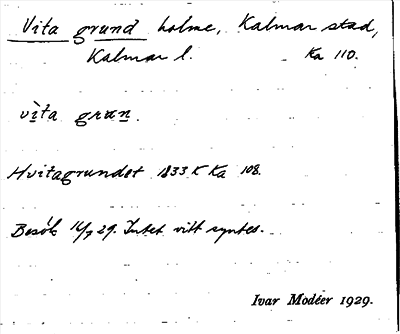 Vita grund holme, Kalmar stad,
Kalmar l. Ka 110.
vìta grun.
Hvitagrundet 1833 K Ka 108.
Besök 16/7 29. Intet vitt syntes.
Ivar Modéer 1929.